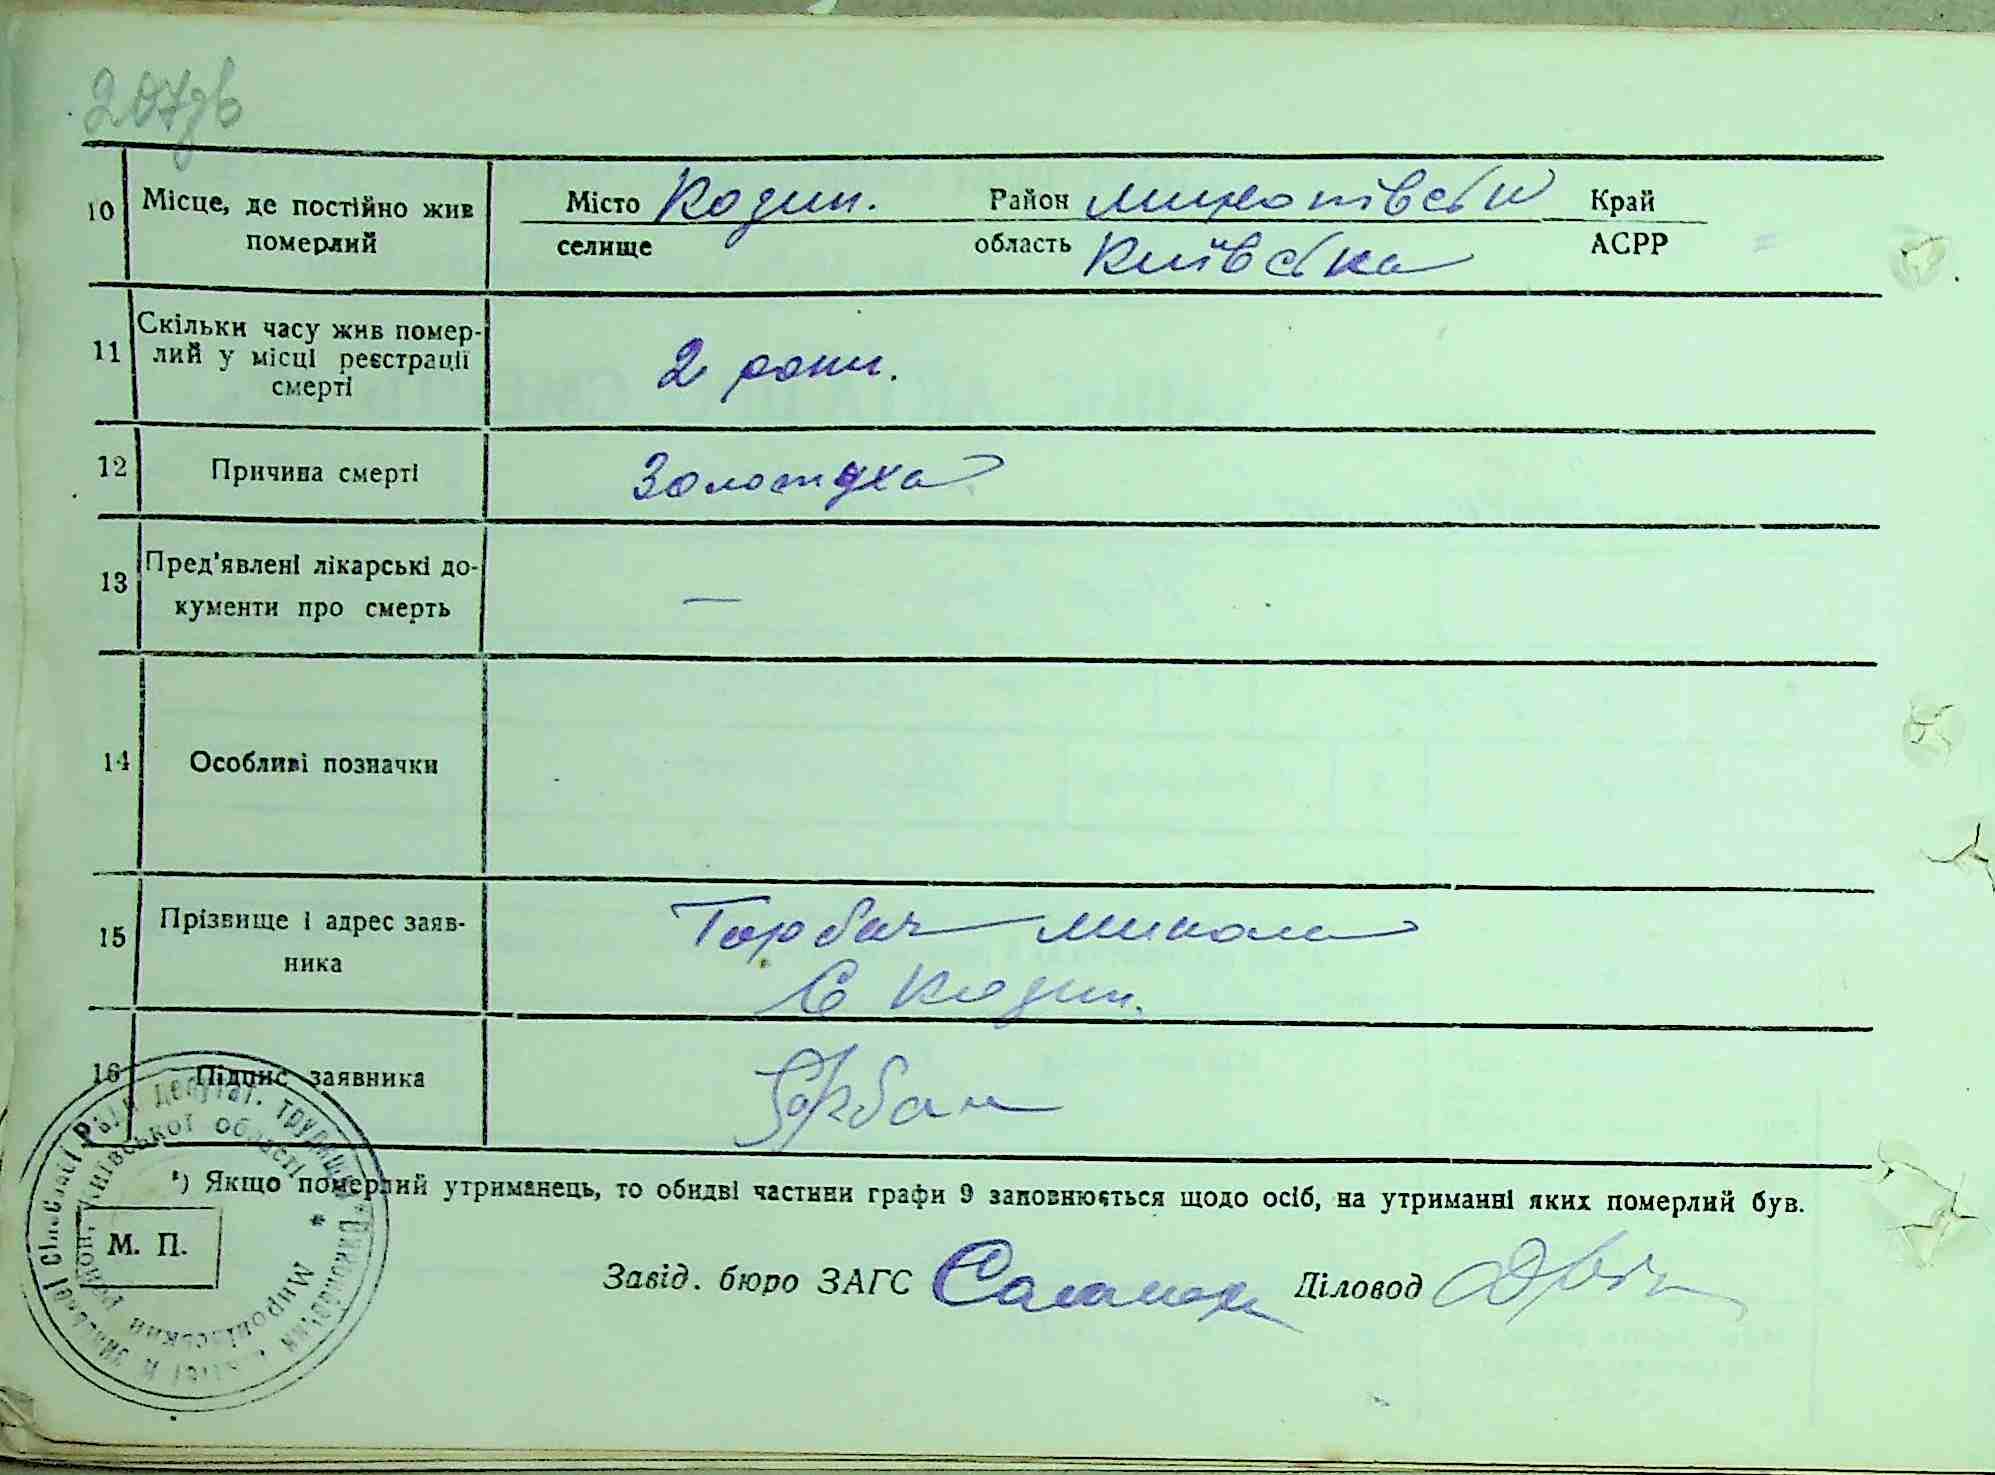 207зв
10 Місце, де постійно жив померлий
Місто Кодин. Район Миропівськ Край
селище область Київська АСРР
11 Скільки часу жив помер-
лий у місці реєстрації
смерті
2 роки.
12 Причина смерті Золотуха
13 Пред'явлені лікарські до-
кументи про смерть
—
14 Особливі позначки
15 Прізвище і адрес заяв-
ника
Горбач Микола
С Кодин.
16 Підпис заявника Горбач
¹) Якщо померлий утриманець, то обидві частини графи 9 заповнюється щодо осіб, на утриманні яких померлий був.
М. П.
Завід. бюро ЗАГС Діловод
Київської області * Миропівський район